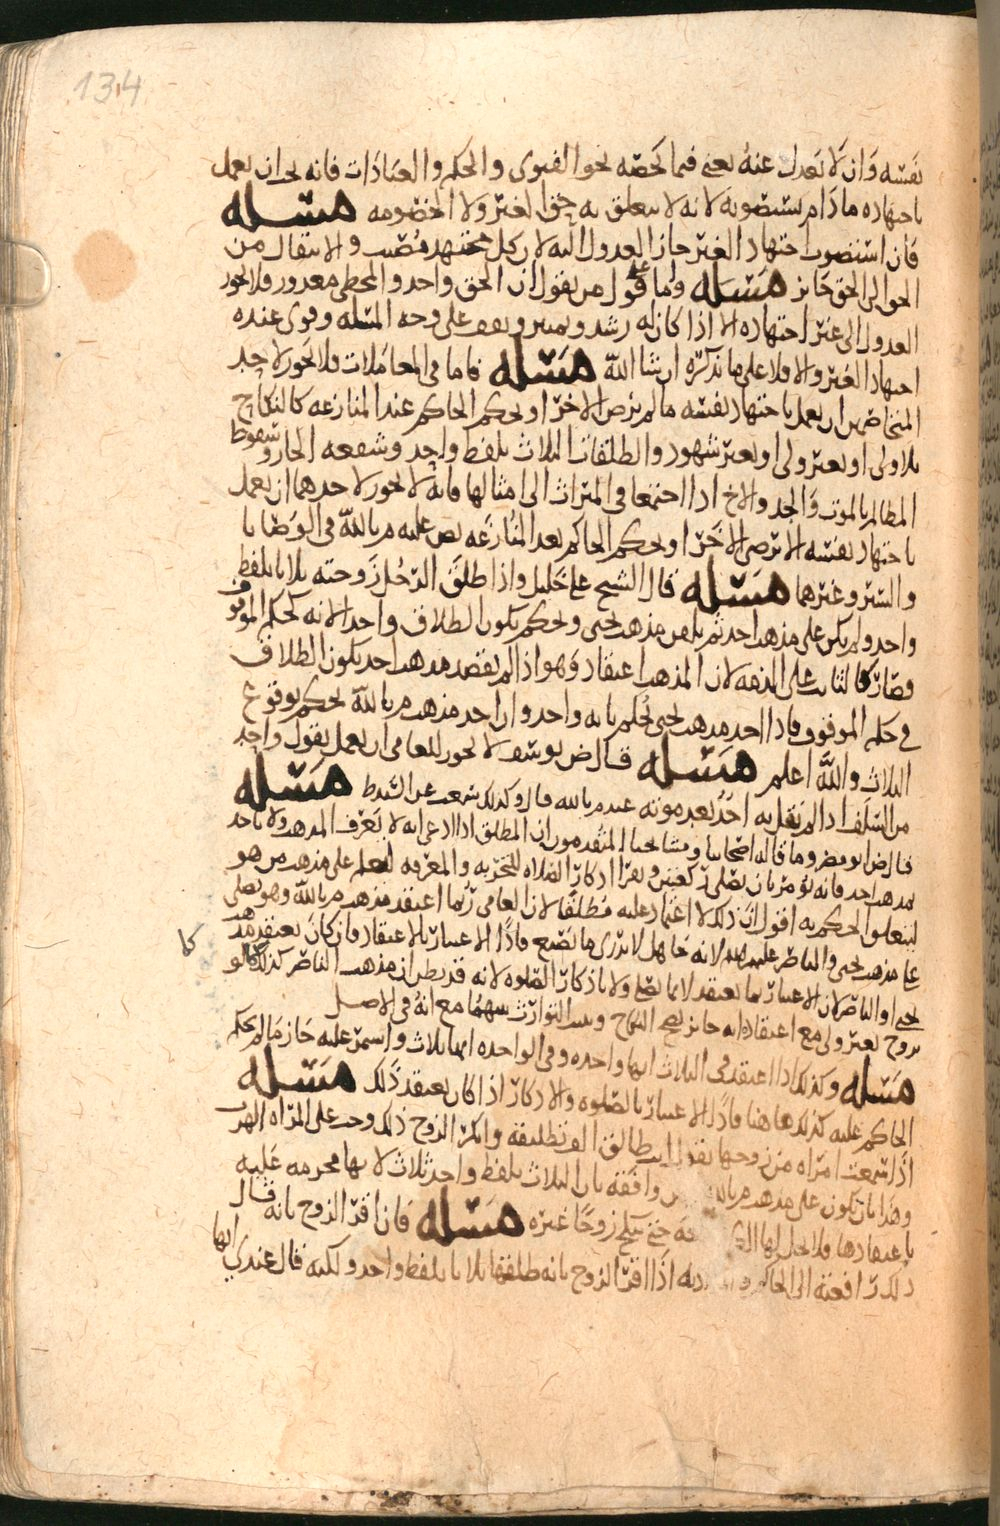 134
نفسه وان لا يعدل عنه يعني فيما يخصه نحو الفتوى والحكم والعبادات فانه يجب ان يعمل
باجتهاده مادام يستصوبه لانه لا يتعلق به حق الغير ولا الخصومه مسله
فان استصوب اجتهاد الغير جاز العدول اليه لان كل مجتهد مصيب والانتقال من
الحق الى الحق جايز مسله واما على قول من يقول ان الحق واحد والمخطي معذور فلا يجوز
العدول الى غير اجتهاده الا اذا كان له رشد وتمييز ويقف على وجه المسله وقوى عنده
اجتهاد الغير والا فلا على ما نذكره ان شا الله مسله فاما في المعاملات فلا يجوز لاحد
المتخاصمين ان يعمل باجتهاد نفسه ما لم يرض الاخر او يحكم الحاكم عند المنازعه كالنكاح
بلا ولي او بغير ولي او بغير شهود والطلقات الثلاث بلفظ واحد وشفعه الجار وسقوط
المظالم بالموت والجد والاخ اذا اجتمعا في الميراث الى امثالها فانه لا يجوز لاحدهما ان يعمل
باجتهاد نفسه الا برضى الاخر او يحكم الحاكم بعد المنازعه نص عليه م بالله في الوصايا
والسير وغيرهما مسله قال الشيخ علي خليل واذا طلق الرجل زوجته ثلاثا بلفظ
واحد ولم يكن على مذهب احد ثم يلقن مذهب يحيى ويحكم بكون الطلاق واحدا لانه كحكم الموقوف
وصار كالثابت على الذمه لان المذهب اعتقاد وهو اذا لم يقصد مذهب احد يكون الطلاق
في حكم الموقوف فاذا اخذ مذهب يحيى يحكم بانه واحد وان اخذ مذهب م بالله يحكم بوقوع
الثلاث والله اعلم مسله قال ض يوسف لا يجوز للعامي ان يعمل بقول واحد
من السلف اذا لم يقل به احد بعد موته عند م بالله قال وكذلك سمعت عن مسله
قال ض ابو مضر وما قاله اصحابنا ومشايخنا المتقدمون ان المطلق اذا ادعى انه لا يعرف المذهب ولا ياخذ
بمذهب احد فانه يؤمر بان يصلي ركعتين ويقرا اذكار الصلاه للتجربه والمعرفه ليعلم على مذهب من هو
ليتعلق الحكم به اقول ان ذلك لا اعتماد عليه مطلقا لان العامي ربما اعتقد مذهب م بالله وهو يصلي
على مذهب يحيى والناصر عليهما السلام لانه جاهل لا يدري ما يصنع فاذًا الاعتبار بالاعتقاد فان كان يعتقد مذهب
يحيى او الناصر لان الاعتبار بما يعتقد لا بما يصلي ولا باذكار الصلوه لانه قد يظن ان مذهب الناصر كذلك كما لو
كما
تزوج بغير ولي مع اعتقاده انه جايز يصح النكاح ويثبت التوارث بينهما مع انه في الاصل
مسله وكذلك اذا اعتقد في الثلاث انها واحده وفي الواحده انها ثلاث واستمر عليه جاز ما لم يحكم
الحاكم عليه كذلك هاهنا فاذًا الاعتبار بالصلوه والاذكار اذا كان يعتقد ذلك مسله
اذا سمعت امراه من زوجها يقول انت طالق الف تطليقه وانكر الزوج ذلك وجب على المراه الهرب
وهذا بان يكون على مذهب م بالله وافقه بان الثلاث بلفظ واحد ثلاث لانها محرمه عليه
باعتقادها ولا يحل لها حتى تنكح زوجا غيره مسله فان اقر الزوج بانه قال
ذلك رافعته الى الحاكم اذا اقر الزوج بانه طلقها ثلاثا بلفظ واحد ولكنه قال عندي انها